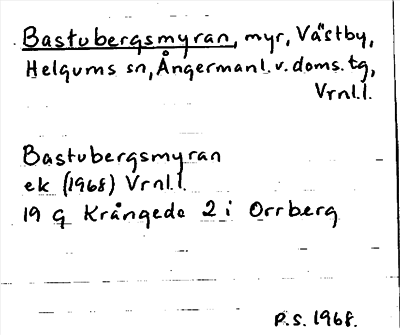 Bastubergsmyran, myr, Västby,
Helgums sn, Ångermanl. v. doms. tg,
Vrnl.l.
Bastubergsmyran
ek (1968) Vrnl.l.
19 G Krångede 2 i Orrberg
P.S. 1968.